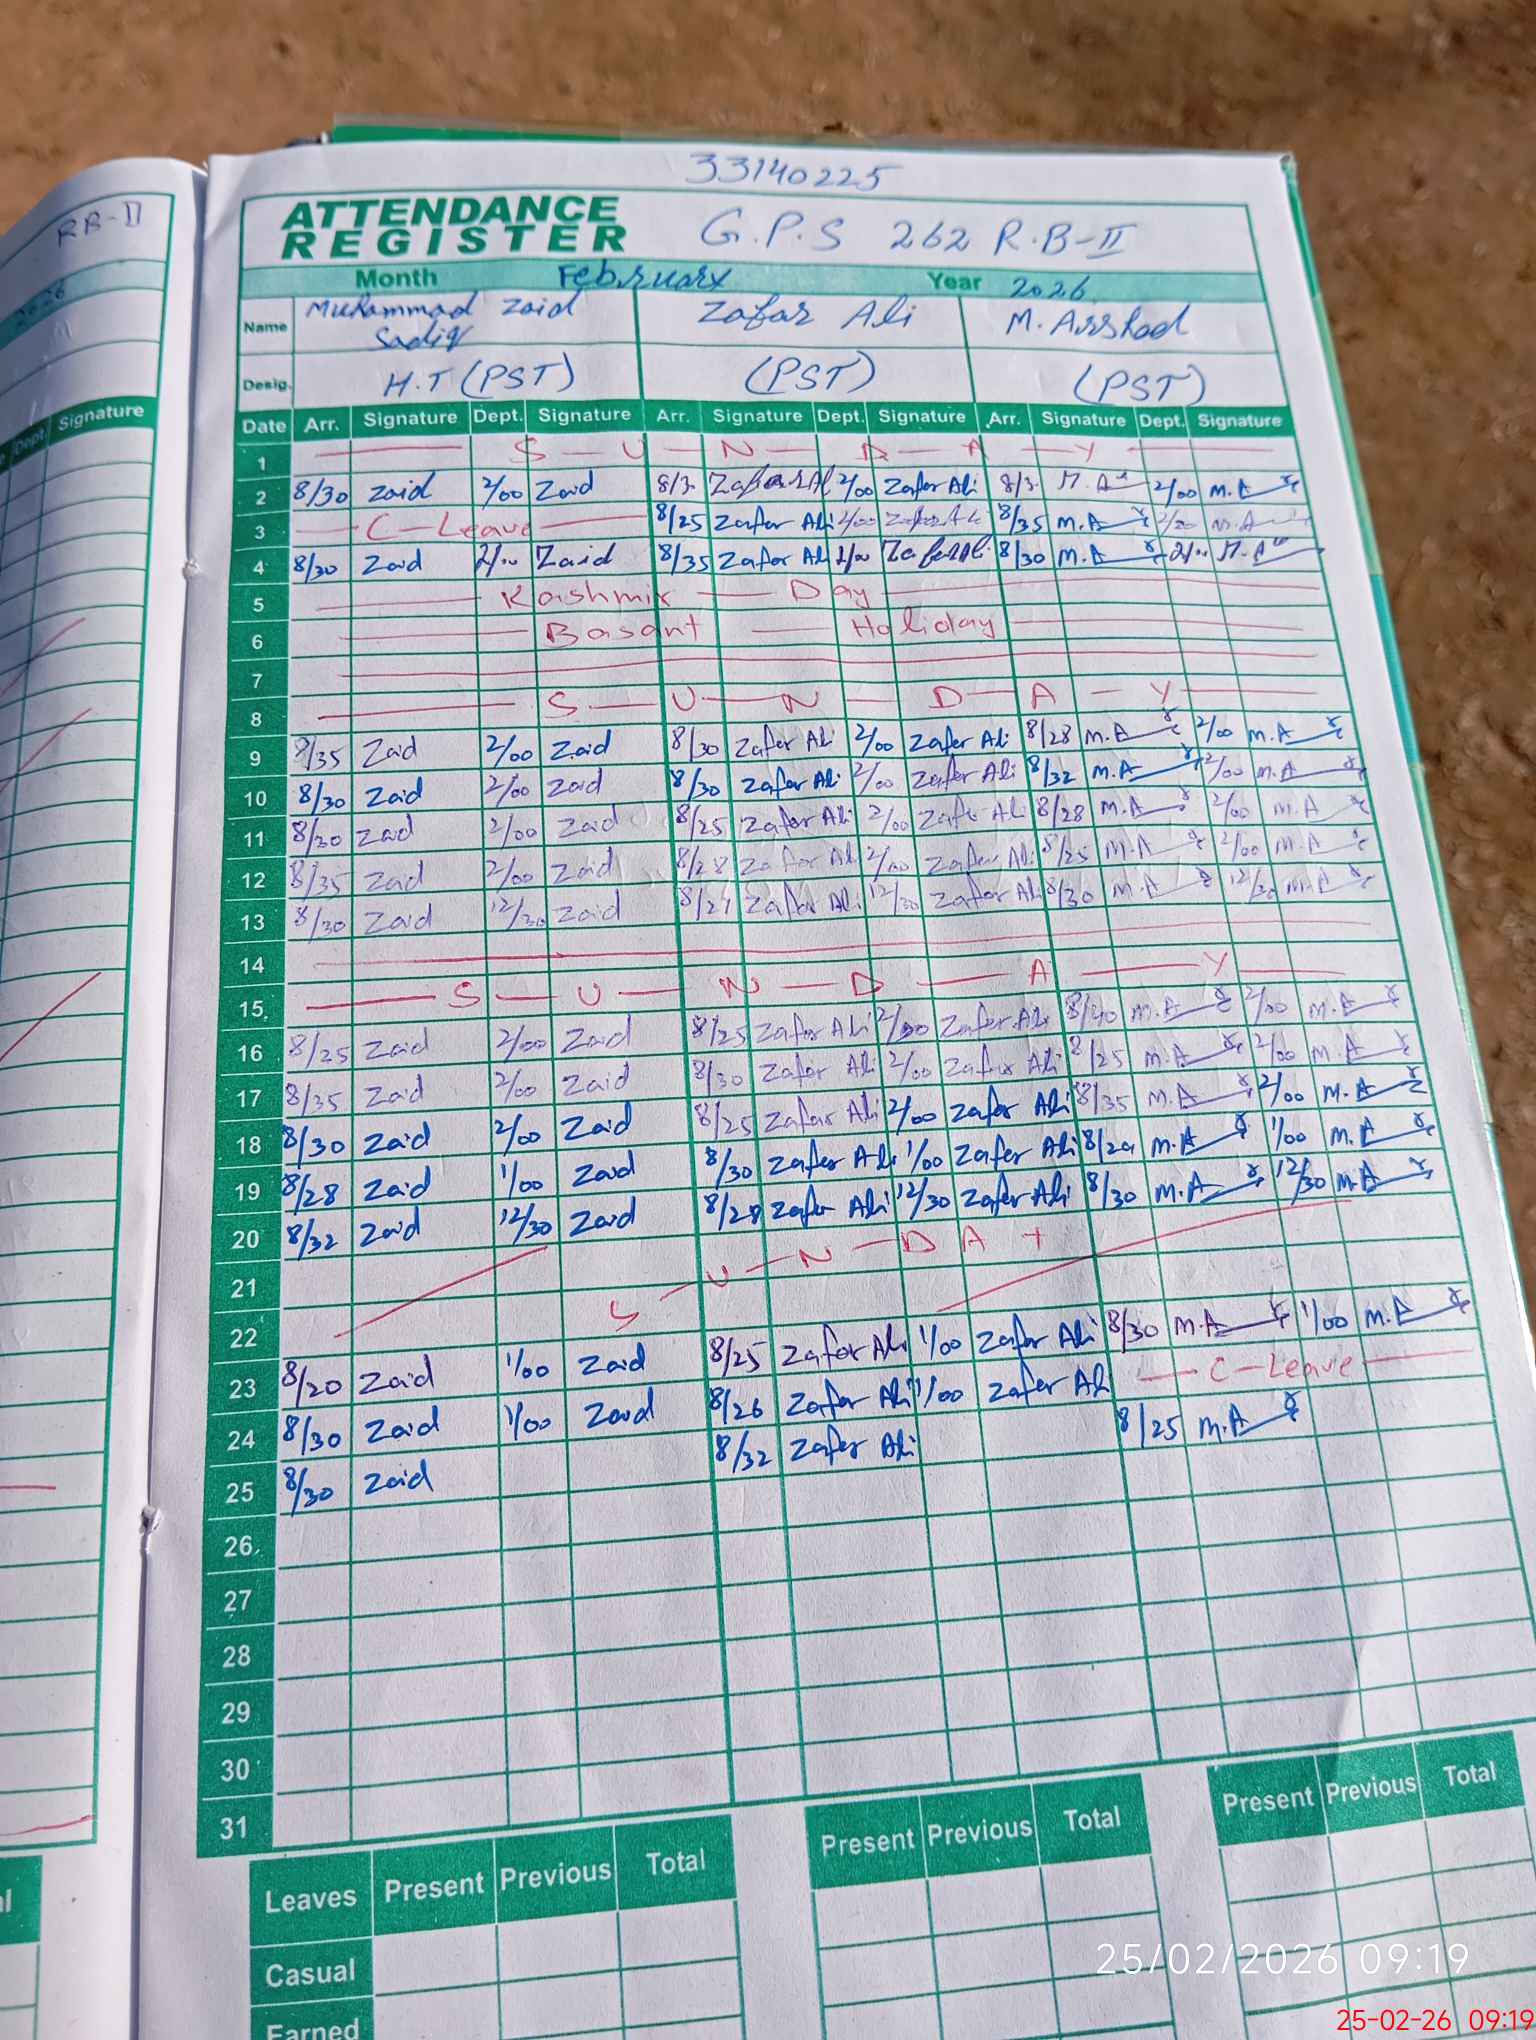 RB-II
2026
Dept. Signature
33140225
ATTENDANCE REGISTER G.P.S 262 R.B-II
Month February Year 2026
Name Muhammad Zaid Sadiq Zafar Ali M. Arshad
Desig. H.T (PST) (PST) (PST)
Date Arr. Signature Dept. Signature Arr. Signature Dept. Signature Arr. Signature Dept. Signature
1 S U N D A Y
2 8/30 Zaid 2/00 Zaid 8/3. Zafar Al 2/00 Zafar Ali 8/3. M.A 2/00 M.A
3 C-Leave 8/25 Zafar Ali 2/00 Zafar Ali 8/35 M.A 2/00 M.A
4 8/30 Zaid 2/00 Zaid 8/35 Zafar Ali 2/00 Zafar Ali 8/30 M.A 2/00 M.A
5 Kashmir Day
6 Basant Holiday
7
8 S U N D A Y
9 8/35 Zaid 2/00 Zaid 8/30 Zafar Ali 2/00 Zafar Ali 8/28 M.A 2/00 M.A
10 8/30 Zaid 2/00 Zaid 8/30 Zafar Ali 2/00 Zafar Ali 8/32 M.A 2/00 M.A
11 8/20 Zaid 2/00 Zaid 8/25 Zafar Ali 2/00 Zafar Ali 8/28 M.A 2/00 M.A
12 8/35 Zaid 2/00 Zaid 8/28 Zafar Ali 2/00 Zafar Ali 8/25 M.A 2/00 M.A
13 8/30 Zaid 12/30 Zaid Zafar Ali 12/30 Zafar Ali 8/30 M.A 12/30 M.A
14
15 S U N D A Y
16 8/25 Zaid 2/00 Zaid 8/25 Zafar Ali 2/00 Zafar Ali 8/40 M.A 2/00 M.A
17 8/35 Zaid 2/00 Zaid 8/30 Zafar Ali 2/00 Zafar Ali 8/25 M.A 2/00 M.A
18 8/30 Zaid 2/00 Zaid 8/25 Zafar Ali 2/00 Zafar Ali 8/35 M.A 2/00 M.A
19 8/28 Zaid 1/00 Zaid 8/30 Zafar Ali 1/00 Zafar Ali 8/29 M.A 1/00 M.A
20 8/32 Zaid 12/30 Zaid 8/28 Zafar Ali 12/30 Zafar Ali 8/30 M.A 12/30 M.A
21
22 S U N D A Y
23 8/20 Zaid 1/00 Zaid 8/25 Zafar Ali 1/00 Zafar Ali 8/30 M.A 1/00 M.A
24 8/30 Zaid 1/00 Zaid 8/26 Zafar Ali 1/00 Zafar Ali C-Leave
25 8/30 Zaid 8/32 Zafar Ali 8/25 M.A
26
27
28
29
30
31
Leaves Present Previous Total Present Previous Total Present Previous Total
Casual
Earned
25/02/2026 09:19
25-02-26 09:19